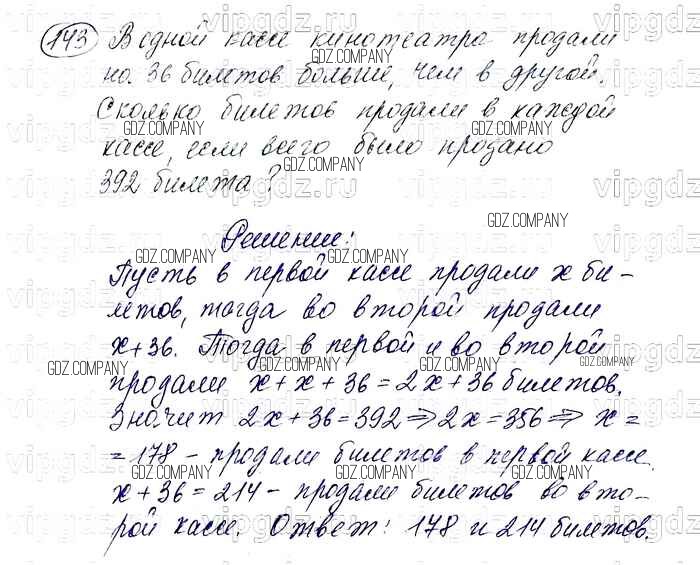 143 В одной кассе кинотеатра продали
на 36 билетов больше, чем в другой.
Сколько билетов продали в каждой
кассе, если всего было продано
392 билета?
Решение:
Пусть в первой кассе продали x би-
летов, тогда во второй продали
x+36. Тогда в первой и во второй
продали x+x+36=2x+36 билетов.
Значит 2x+36=392⇒2x=356⇒x=
=178 - продали билетов в первой кассе.
x+36=214 - продали билетов во вто-
рой кассе. Ответ: 178 и 214 билетов.
GDZ.COMPANY
vipgdz.ru